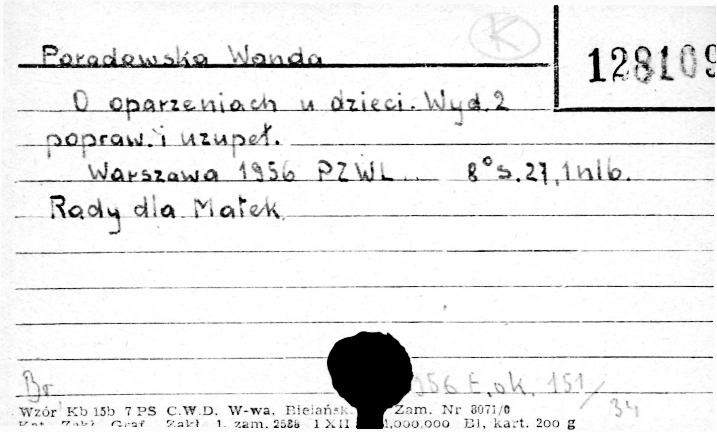 K
128109
Paradowska Wanda
O oparzeniach u dzieci. Wyd. 2
popraw. i uzupeł.
Warszawa 1956 PZWL. 8° s. 27, 1 nlb.
Rady dla Matek
Br
56 E. ok. 151/34
Wzór Kb 15b 7 PS C.W.D. W-wa, Bielańsk. Zam. Nr 8071/0
Kat. Zakł. Graf. Zakł. 1. zam. 2588 1 XII 1,000,000 Bl, kart. 200 g